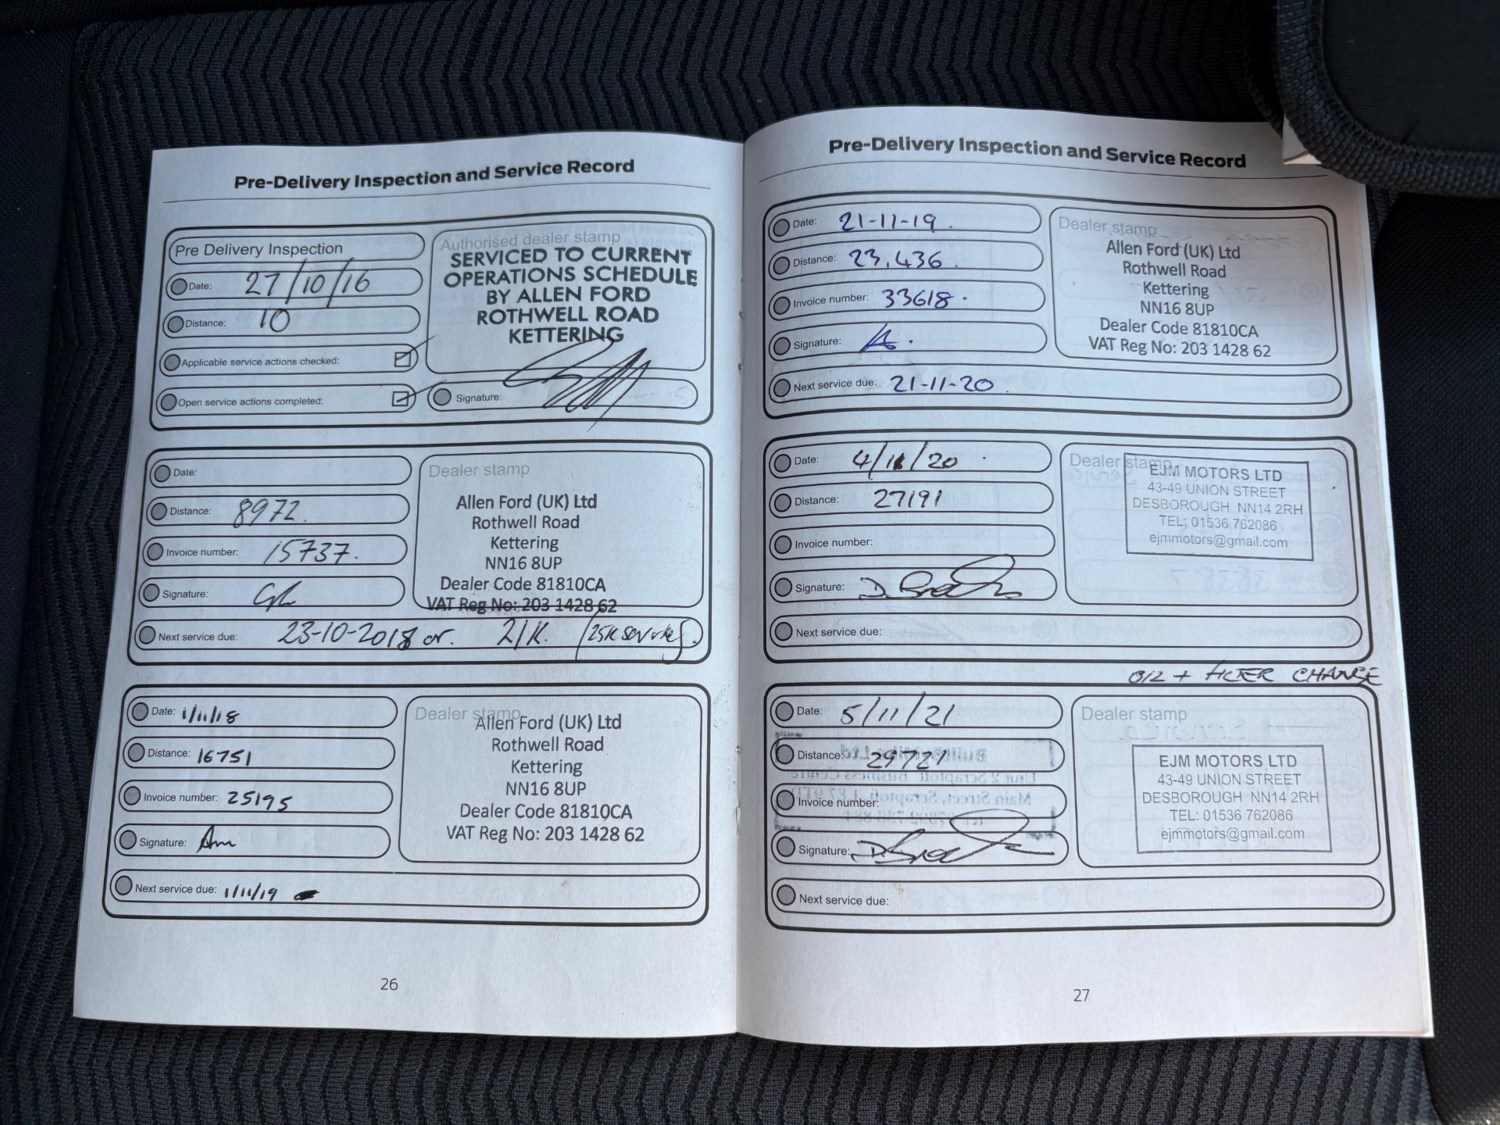 Pre-Delivery Inspection and Service Record
Pre Delivery Inspection
Date: 27/10/16
Distance: 10
Applicable service actions checked:
Open service actions completed:
Authorised dealer stamp
SERVICED TO CURRENT
OPERATIONS SCHEDULE
BY ALLEN FORD
ROTHWELL ROAD
KETTERING
Signature:
Date:
Distance: 8972.
Invoice number: 15737.
Signature:
Dealer stamp
Allen Ford (UK) Ltd
Rothwell Road
Kettering
NN16 8UP
Dealer Code 81810CA
VAT Reg No: 203 1428 62
Next service due: 23-10-2018 or. 21K.
Date: 1/11/18
Distance: 16751
Invoice number: 25195
Signature:
Dealer stamp
Allen Ford (UK) Ltd
Rothwell Road
Kettering
NN16 8UP
Dealer Code 81810CA
VAT Reg No: 203 1428 62
Next service due: 1/11/19
26
Pre-Delivery Inspection and Service Record
Date: 21-11-19
Distance: 23,436.
Invoice number: 33618.
Signature:
Next service due: 21-11-20.
Dealer stamp
Allen Ford (UK) Ltd
Rothwell Road
Kettering
NN16 8UP
Dealer Code 81810CA
VAT Reg No: 203 1428 62
Date: 4/11/20
Distance: 27191
Invoice number:
Signature:
Next service due:
Dealer stamp
EJM MOTORS LTD
43-49 UNION STREET
DESBOROUGH NN14 2RH
TEL: 01536 762086
ejmmotors@gmail.com
OIL + FILTER CHANGE
Date: 5/11/21
Distance: 29727
Invoice number:
Signature:
Next service due:
Dealer stamp
EJM MOTORS LTD
43-49 UNION STREET
DESBOROUGH NN14 2RH
TEL: 01536 762086
ejmmotors@gmail.com
27